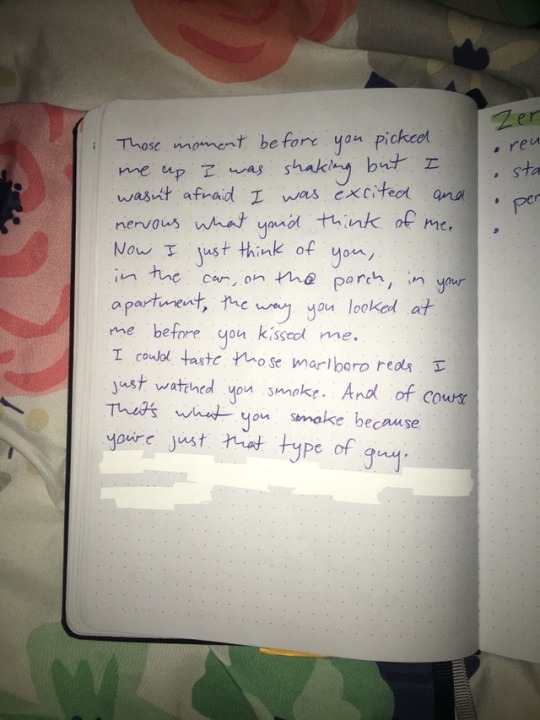 Those moment before you picked
me up I was shaking but I
wasn't afraid I was excited and
nervous what you'd think of me.
Now I just think of you,
in the car, on the porch, in your
apartment, the way you looked at
me before you kissed me.
I could taste those marlboro reds I
just watched you smoke. And of course
That's what you smoke because
you're just that type of guy.
Zer
• reu
• sta
• per
•